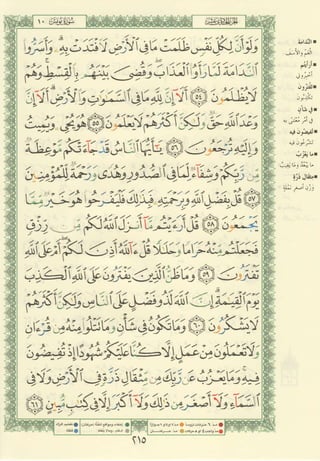 الجزء الحادي عشر
سورة يونس
١٠
وَلَوْ أَنَّ لِكُلِّ نَفْسٍ ظَلَمَتْ مَا فِي ٱلْأَرْضِ لَٱفْتَدَتْ بِهِۦ ۗ وَأَسَرُّوا۟
ٱلنَّدَامَةَ لَمَّا رَأَوُا۟ ٱلْعَذَابَ ۖ وَقُضِىَ بَيْنَهُم بِٱلْقِسْطِ ۚ وَهُمْ
لَا يُظْلَمُونَ ٥٤ أَلَآ إِنَّ لِلَّهِ مَا فِي ٱلسَّمَـٰوَٰتِ وَٱلْأَرْضِ ۗ أَلَآ إِنَّ
وَعْدَ ٱللَّهِ حَقٌّ وَلَـٰكِنَّ أَكْثَرَهُمْ لَا يَعْلَمُونَ ٥٥ هُوَ يُحْىِۦ وَيُمِيتُ
وَإِلَيْهِ تُرْجَعُونَ ٥٦ يَـٰٓأَيُّهَا ٱلنَّاسُ قَدْ جَآءَتْكُم مَّوْعِظَةٌ
مِّن رَّبِّكُمْ وَشِفَآءٌ لِّمَا فِي ٱلصُّدُورِ وَهُدًى وَرَحْمَةٌ لِّلْمُؤْمِنِينَ
٥٧ قُلْ بِفَضْلِ ٱللَّهِ وَبِرَحْمَتِهِۦ فَبِذَٰلِكَ فَلْيَفْرَحُوا۟ هُوَ خَيْرٌ مِّمَّا
يَجْمَعُونَ ٥٨ قُلْ أَرَءَيْتُم مَّآ أَنزَلَ ٱللَّهُ لَكُم مِّن رِّزْقٍ
فَجَعَلْتُم مِّنْهُ حَرَامًا وَحَلَـٰلًا قُلْ ءَآللَّهُ أَذِنَ لَكُمْ ۖ أَمْ عَلَى ٱللَّهِ
تَفْتَرُونَ ٥٩ وَمَا ظَنُّ ٱلَّذِينَ يَفْتَرُونَ عَلَى ٱللَّهِ ٱلْكَذِبَ
يَوْمَ ٱلْقِيَـٰمَةِ ۗ إِنَّ ٱللَّهَ لَذُو فَضْلٍ عَلَى ٱلنَّاسِ وَلَـٰكِنَّ أَكْثَرَهُمْ
لَا يَشْكُرُونَ ٦٠ وَمَا تَكُونُ فِي شَأْنٍ وَمَا تَتْلُوا۟ مِنْهُ مِن قُرْءَانٍ
وَلَا تَعْمَلُونَ مِنْ عَمَلٍ إِلَّا كُنَّا عَلَيْكُمْ شُهُودًا إِذْ تُفِيضُونَ
فِيهِ ۚ وَمَا يَعْزُبُ عَن رَّبِّكَ مِن مِّثْقَالِ ذَرَّةٍ فِي ٱلْأَرْضِ وَلَا فِي
ٱلسَّمَآءِ وَلَآ أَصْغَرَ مِن ذَٰلِكَ وَلَآ أَكْبَرَ إِلَّا فِي كِتَـٰبٍ مُّبِينٍ ٦١
الندامة
الغم والأسف
أرأيتم
أخبروني
تفترون
تكذبون
في شأن
في أمر معتنى به
تفيضون فيه
تشرعون فيه
ما يعزب
ما يبعد وما يغيب
مثقال ذرة
وزن أصغر نملة
٢١٥